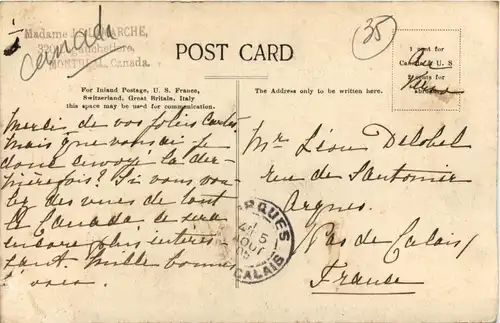 Canada
35
Madame
ARCHE,
MONTREAL, Canada.
POST CARD
1 cent for
Canada & U. S
2 cents for
For Inland Postage, U. S. France,
Switzerland, Great Britain, Italy
this space may be used for communication.
The Address only to be written here.
Merci de vos jolies cartes
mais que vous ai je
donc envoyé la der-
nière fois? Si vous vou-
lez des vues de tout
le Canada ce sera
encore plus intéres
sant. Mille bonnes
choses
Mr Léon Delobel
rue de
Arques
Pas de Calais/
France
ARQUES
AOUT
05
CALAIS